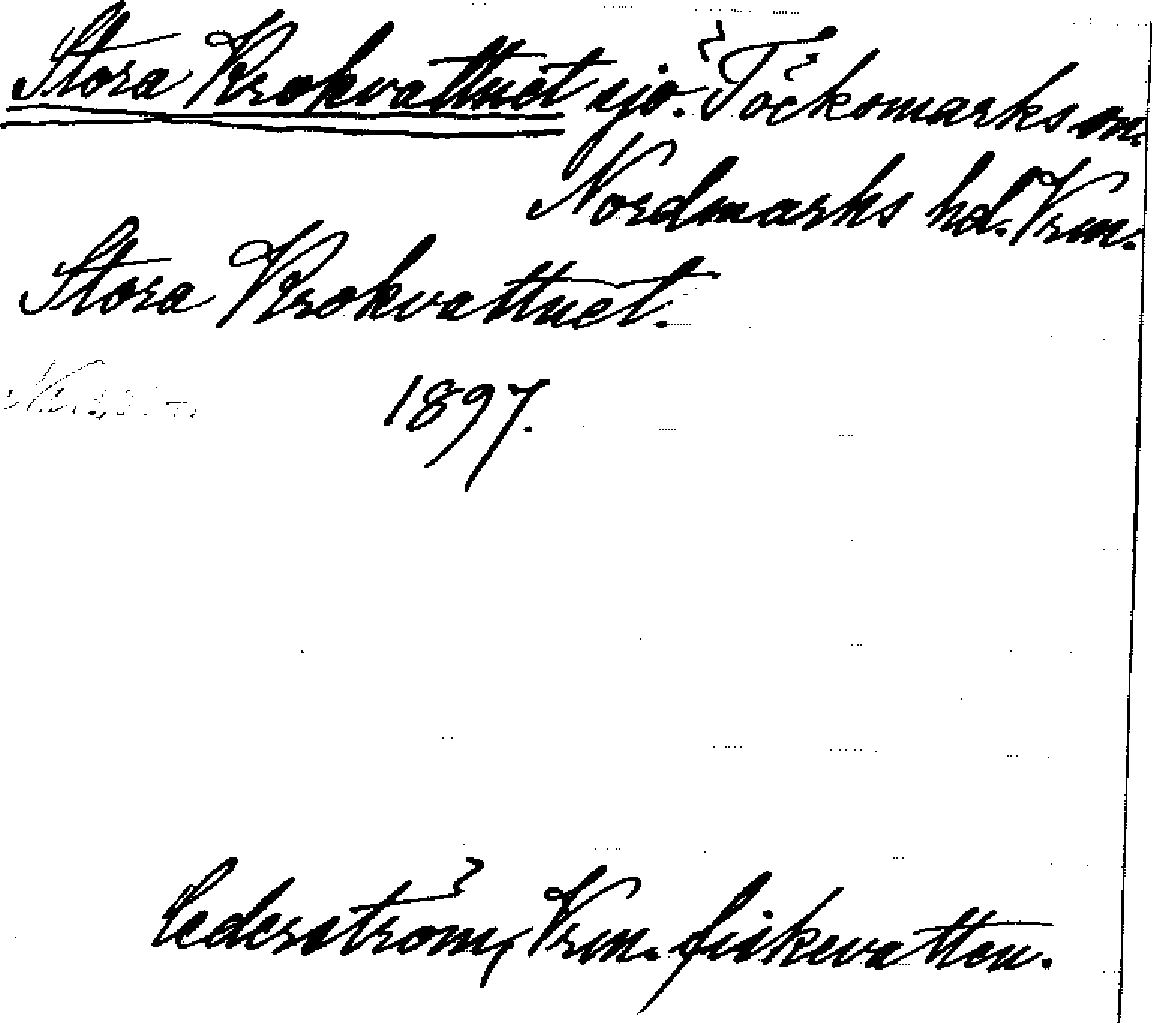 Stora Krokvattnet sjö. Töcksmarks sn.
Nordmarks hd. Vrm.
Stora Krokvattnet.
1897.
Cederström, Vrm. fiskevatten.